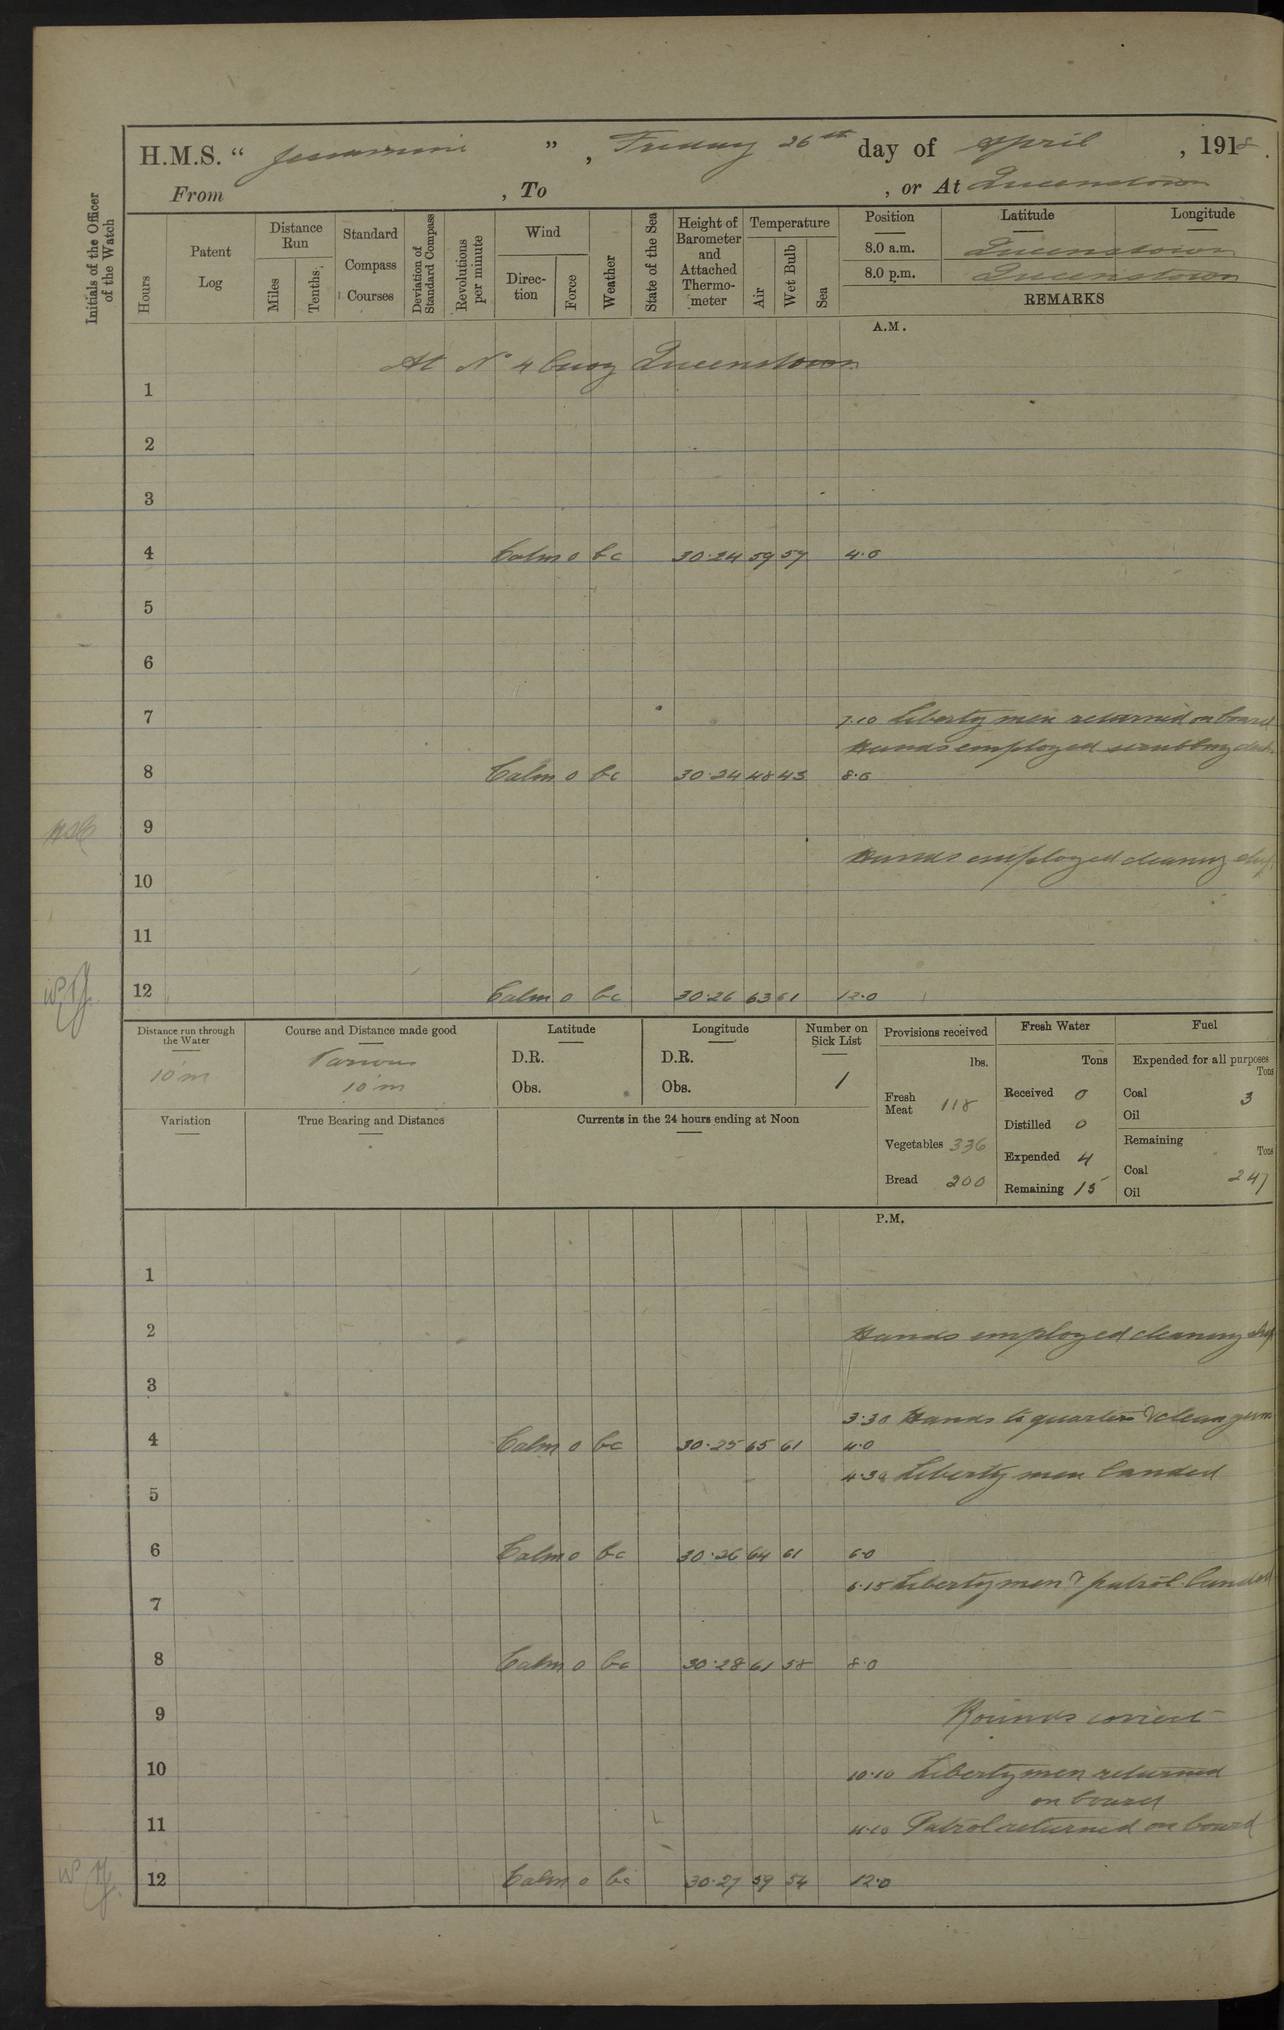 H.M.S. “ Jessamine ” , Friday 26th day of April , 1918.
From , To , or At Queenstown
Initials of the Officer of the Watch
Hours
Patent Log
Distance Run
Miles
Tenths.
Standard Compass Courses
Deviation of Standard Compass
Revolutions per minute
Wind
Direc-tion
Force
Weather
State of the Sea
Height of Barometer and Attached Thermo-meter
Temperature
Air
Wet Bulb
Sea
Position Latitude Longitude
8.0 a.m. Queenstown
8.0 p.m. Queenstown
REMARKS
A.M.
At No 4 buoy Queenstown
1
2
3
4 Calm 0 bc 30.24 59 57 4.0
5
6
7 7.10 Liberty men returned on board
Hands employed scrubbing deck
8 Calm 0 bc 30.24 48 43 8.0
9
Hands employed cleaning ship
10
11
12 Calm 0 bc 30.26 63 61 12.0
Distance run through the Water
10 m
Course and Distance made good
Various
10 m
Latitude
D.R.
Obs.
Longitude
D.R.
Obs.
Number on Sick List
1
Provisions received
lbs.
Fresh Meat 118
Vegetables 336
Bread 200
Fresh Water
Tons
Received 0
Distilled 0
Expended 4
Remaining 15
Fuel
Expended for all purposes
Tons
Coal 3
Oil
Remaining
Tons
Coal 247
Oil
Variation
True Bearing and Distance
Currents in the 24 hours ending at Noon
P.M.
1
2 Hands employed cleaning ship
3
3.30 Hands to quarters & clean guns
4 Calm 0 bc 30.25 65 61 4.0
4.30 Liberty men landed
5
6 Calm 0 bc 30.26 64 61 6.0
6.15 Liberty men & patrol landed
7
8 Calm 0 bc 30.28 61 58 8.0
9 Rounds correct
10 10.10 Liberty men returned
on board
11 11.10 Patrol returned on board
12 Calm 0 bc 30.27 59 54 12.0